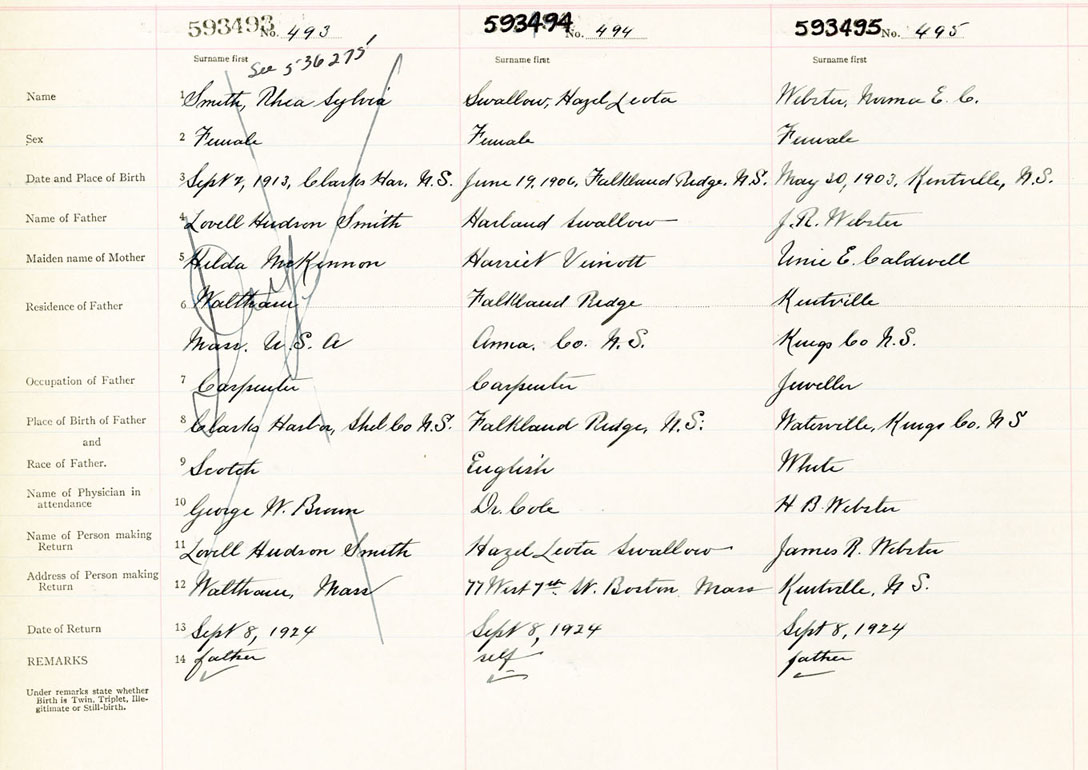 593493 No. 493 593494 No. 494 593495 No. 495
See 536275
Surname first Surname first Surname first
Name 1 Smith, Rhea Sylvia Swallow, Hazel Leota Webster, Norma E. C.
Sex 2 Female Female Female
Date and Place of Birth 3 Sept 7, 1913, Clarks Har. N.S. June 19, 1906, Falkland Ridge, N.S. May 20, 1903, Kentville, N.S.
Name of Father 4 Lovell Hudson Smith Harland Swallow J. R. Webster
Maiden name of Mother 5 Hilda McKinnon Harriet Veinott Unie E. Caldwell
Residence of Father 6 Waltham Falkland Ridge Kentville
Mass. U.S.A Anna. Co. N.S. Kings Co N.S.
Occupation of Father 7 Carpenter Carpenter Jeweller
Place of Birth of Father 8 Clarks Harbor, Shel Co N.S. Falkland Ridge, N.S. Waterville, Kings Co. N S
and
Race of Father. 9 Scotch English White
Name of Physician in attendance 10 George W. Brown Dr. Cole H B. Webster
Name of Person making Return 11 Lovell Hudson Smith Hazel Leota Swallow James R. Webster
Address of Person making Return 12 Waltham, Mass 77 West 7th St. Boston Mass Kentville, N S.
Date of Return 13 Sept 8, 1924 Sept 8, 1924 Sept 8, 1924
REMARKS 14 father self father
Under remarks state whether
Birth is Twin, Triplet, Ille-
gitimate or Still-birth.